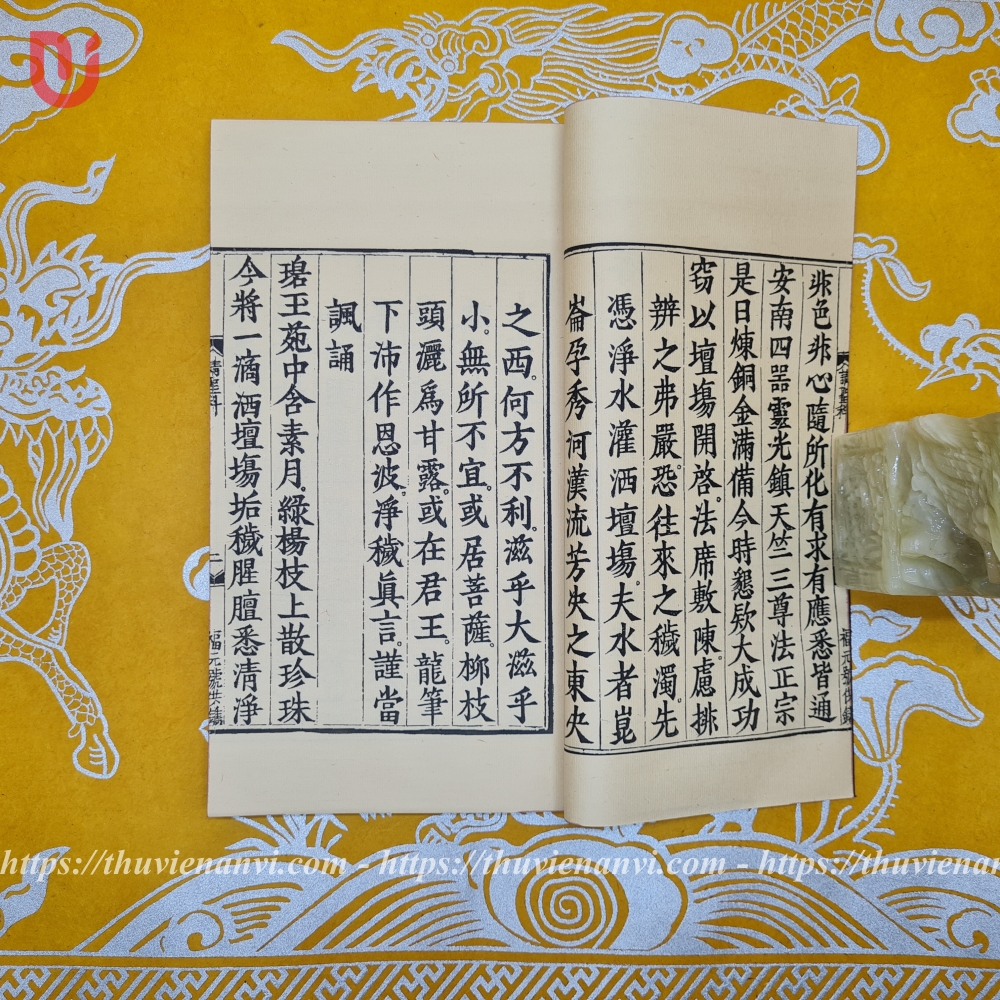 非色非心隨所化有求有應悉皆通
安南四器靈光鎮天竺三尊法正宗
是日煉銅金滿備今時懇欵大成功
窃以壇塲開啓。法席敷陳。慮排
辨之弗嚴。恐徃來之穢濁。先
憑淨水灌洒壇塲。夫水者崑
崙孕秀河漢流芳决之東决
之西。何方不利。滋乎大滋乎
小。無所不宜。或居菩薩。柳枝
頭灑爲甘露。或在君王。龍筆
下沛作恩波。淨穢眞言。謹當
諷誦
琩玉苑中含素月綠楊枝上散珍珠
今將一滴洒壇塲垢穢腥膻悉清淨
請聖科
二
福元號供鐫
https://thuvienanvi.com - https://thuvienanvi.com - https://thuvienanvi